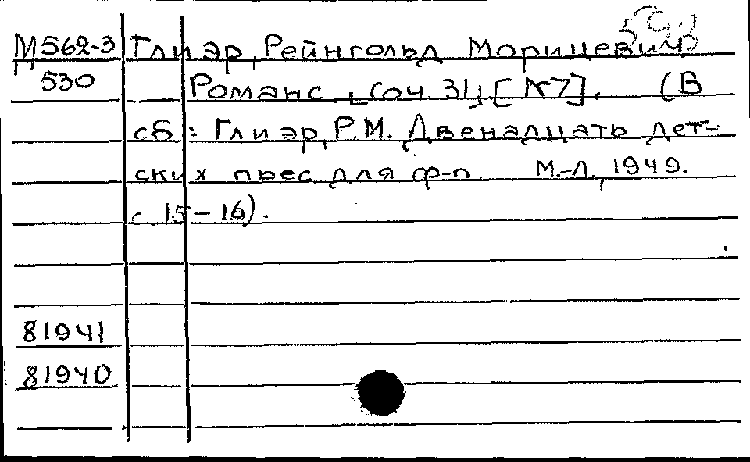 М562-3 Глиэр, РейнгольдМорицевич
530 Романс, соч. 31, [№7]. (В
сб: Глиэр, Р.М. Двенадцать дет-
ских пьес для ф-п. М.-Л., 1949.
с. 15-16).
81941
81940